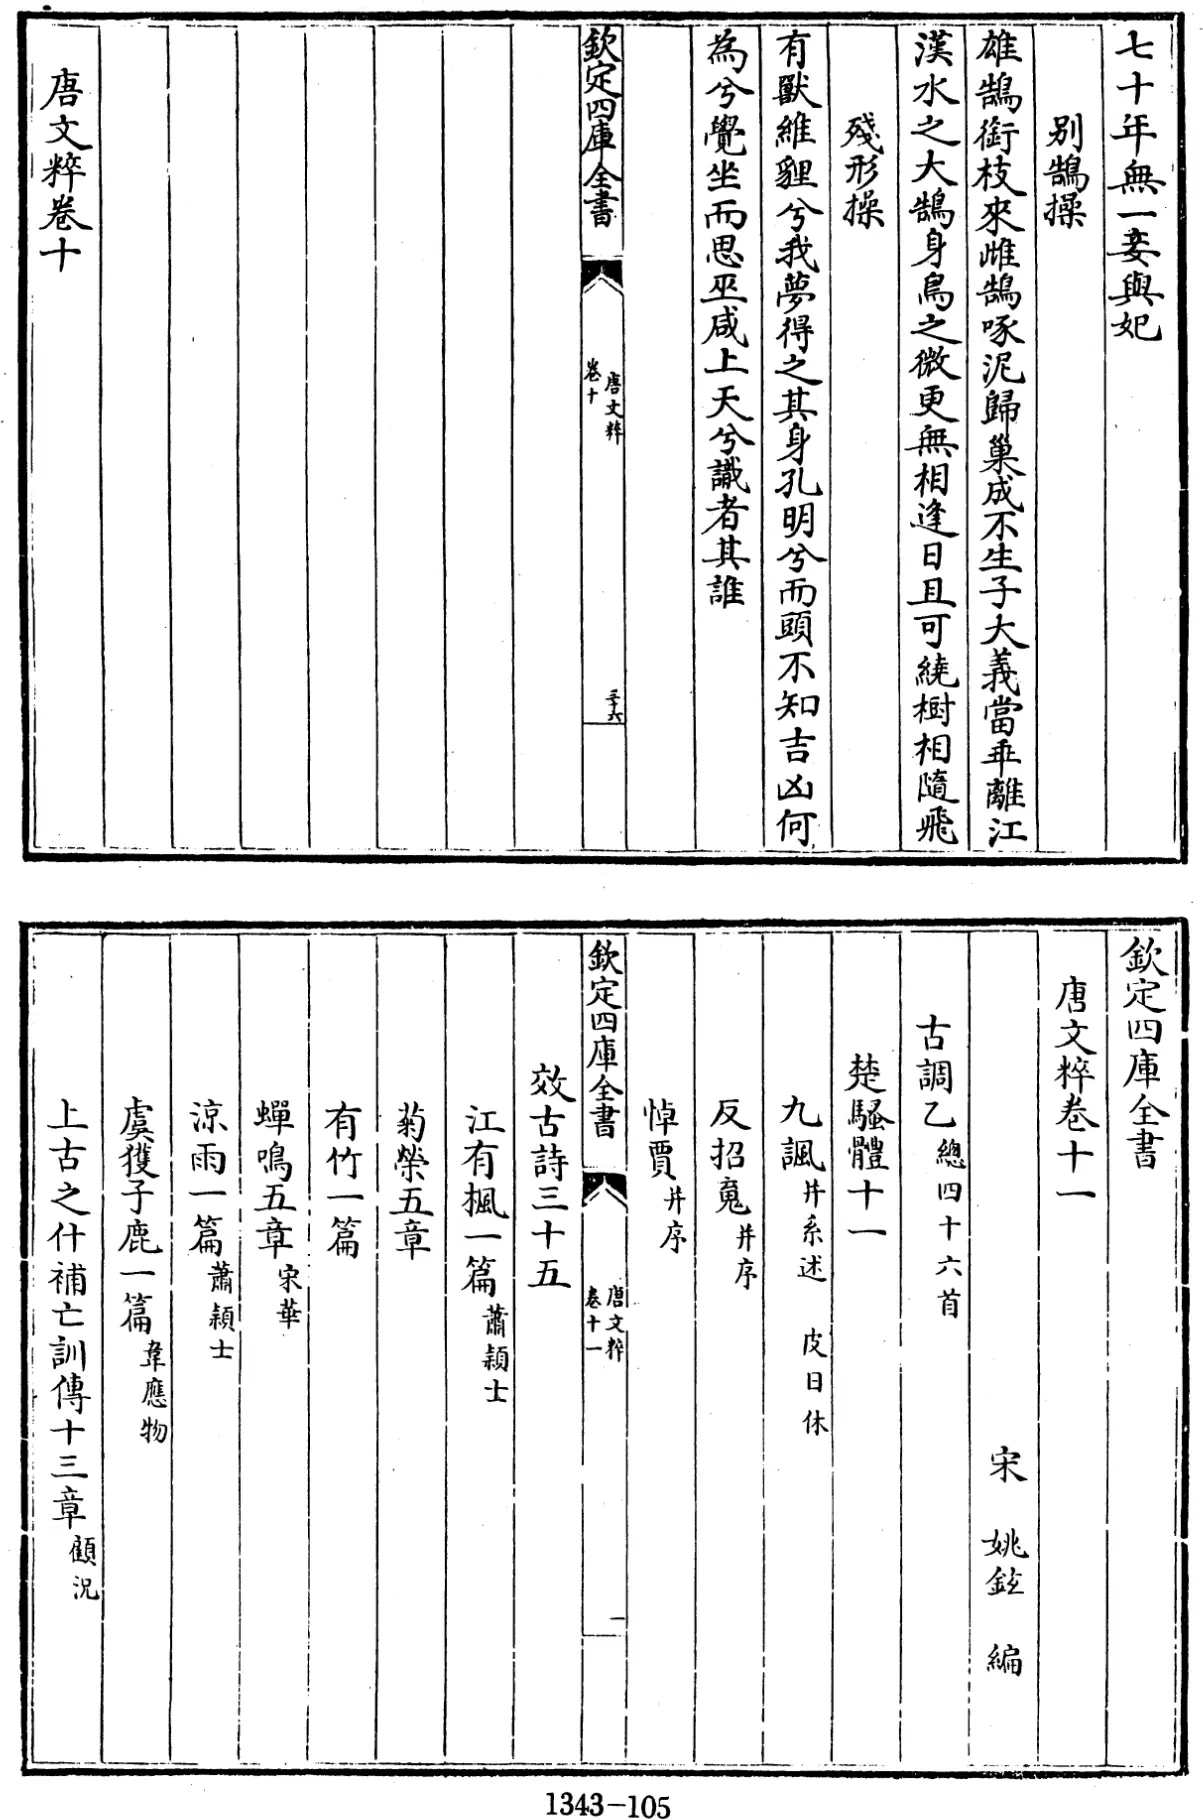 七十年無一妾與妃
别鵠操
雄鵠銜枝來雌鵠啄泥歸巢成不生子大義當乖離江
漢水之大鵠身鳥之微更無相逢日且可繞樹相隨飛
殘形操
有獸維貍兮我夢得之其身孔明兮而頭不知吉凶何
為兮覺坐而思巫咸上天兮識者其誰
欽定四庫全書
唐文粹
卷十
三十六
唐文粹卷十
欽定四庫全書
唐文粹卷十一
宋 姚鉉 編
古調乙總四十六首
楚騷體十一
九諷并系述 皮日休
反招魂并序
悼賈并序
欽定四庫全書
唐文粹
卷十一
一
效古詩三十五
江有楓一篇蕭穎士
菊榮五章
有竹一篇
蟬鳴五章宋華
涼雨一篇蕭穎士
虞獲子鹿一篇韋應物
上古之什補亡訓傳十三章顧況
1343-105